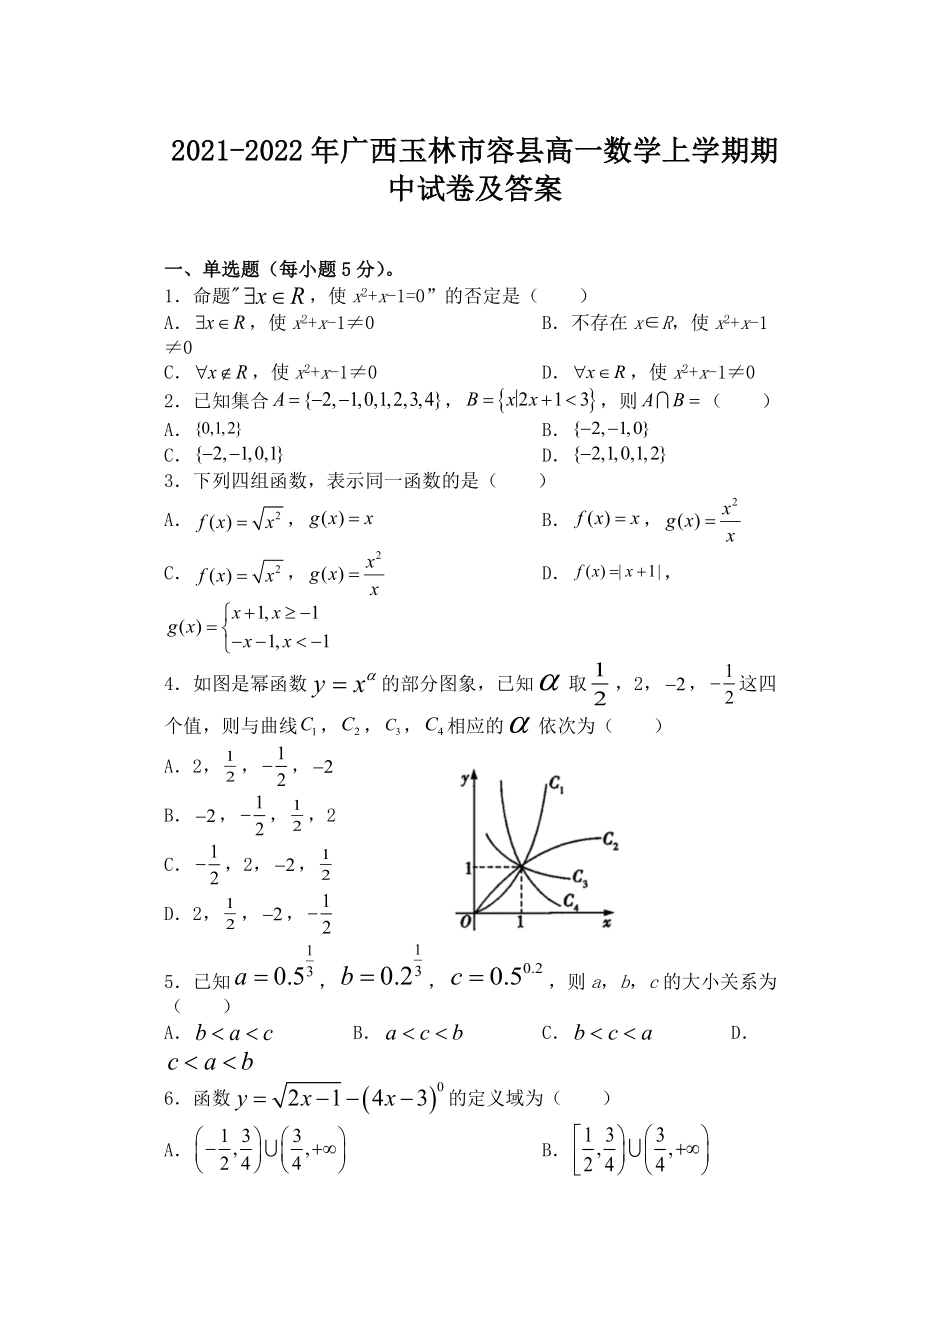 2021-2022 年广西玉林市容县高一数学上学期期
中试卷及答案
一、单选题（每小题 5 分）。
1．命题"∃x∈R，使 x²+x-1=0”的否定是（　　）
A．∃x∈R，使 x²+x-1≠0　　B．不存在 x∈R，使 x²+x-1
≠0
C．∀x∉R，使 x²+x-1≠0　　D．∀x∈R，使 x²+x-1≠0
2．已知集合 A={-2,-1,0,1,2,3,4}，B={x|2x+1<3}，则 A⋂B=（　　）
A．{0,1,2}　　B．{-2,-1,0}
C．{-2,-1,0,1}　　D．{-2,1,0,1,2}
3．下列四组函数，表示同一函数的是（　　）
A．f(x)=√x²，g(x)=x　　B．f(x)=x，g(x)=x²/x
C．f(x)=√x²，g(x)=x²/x　　D．f(x)=|x+1|，
g(x)={x+1, x≥-1
-x-1, x<-1
4．如图是幂函数 y=x^α 的部分图象，已知 α 取 1/2，2，-2，-1/2 这四
个值，则与曲线 C₁，C₂，C₃，C₄ 相应的 α 依次为（　　）
A．2，1/2，-1/2，-2
B．-2，-1/2，1/2，2
C．-1/2，2，-2，1/2
D．2，1/2，-2，-1/2
y
C₁
C₂
1
C₃
C₄
O 1 x
5．已知 a=0.5^(1/3)，b=0.2^(1/3)，c=0.5^0.2，则 a，b，c 的大小关系为
（　　）
A．b<a<c　　B．a<c<b　　C．b<c<a　　D．
c<a<b
6．函数 y=√(2x-1)-(4x-3)⁰ 的定义域为（　　）
A．(-1/2,3/4)∪(3/4,+∞)　　B．[1/2,3/4)∪(3/4,+∞)